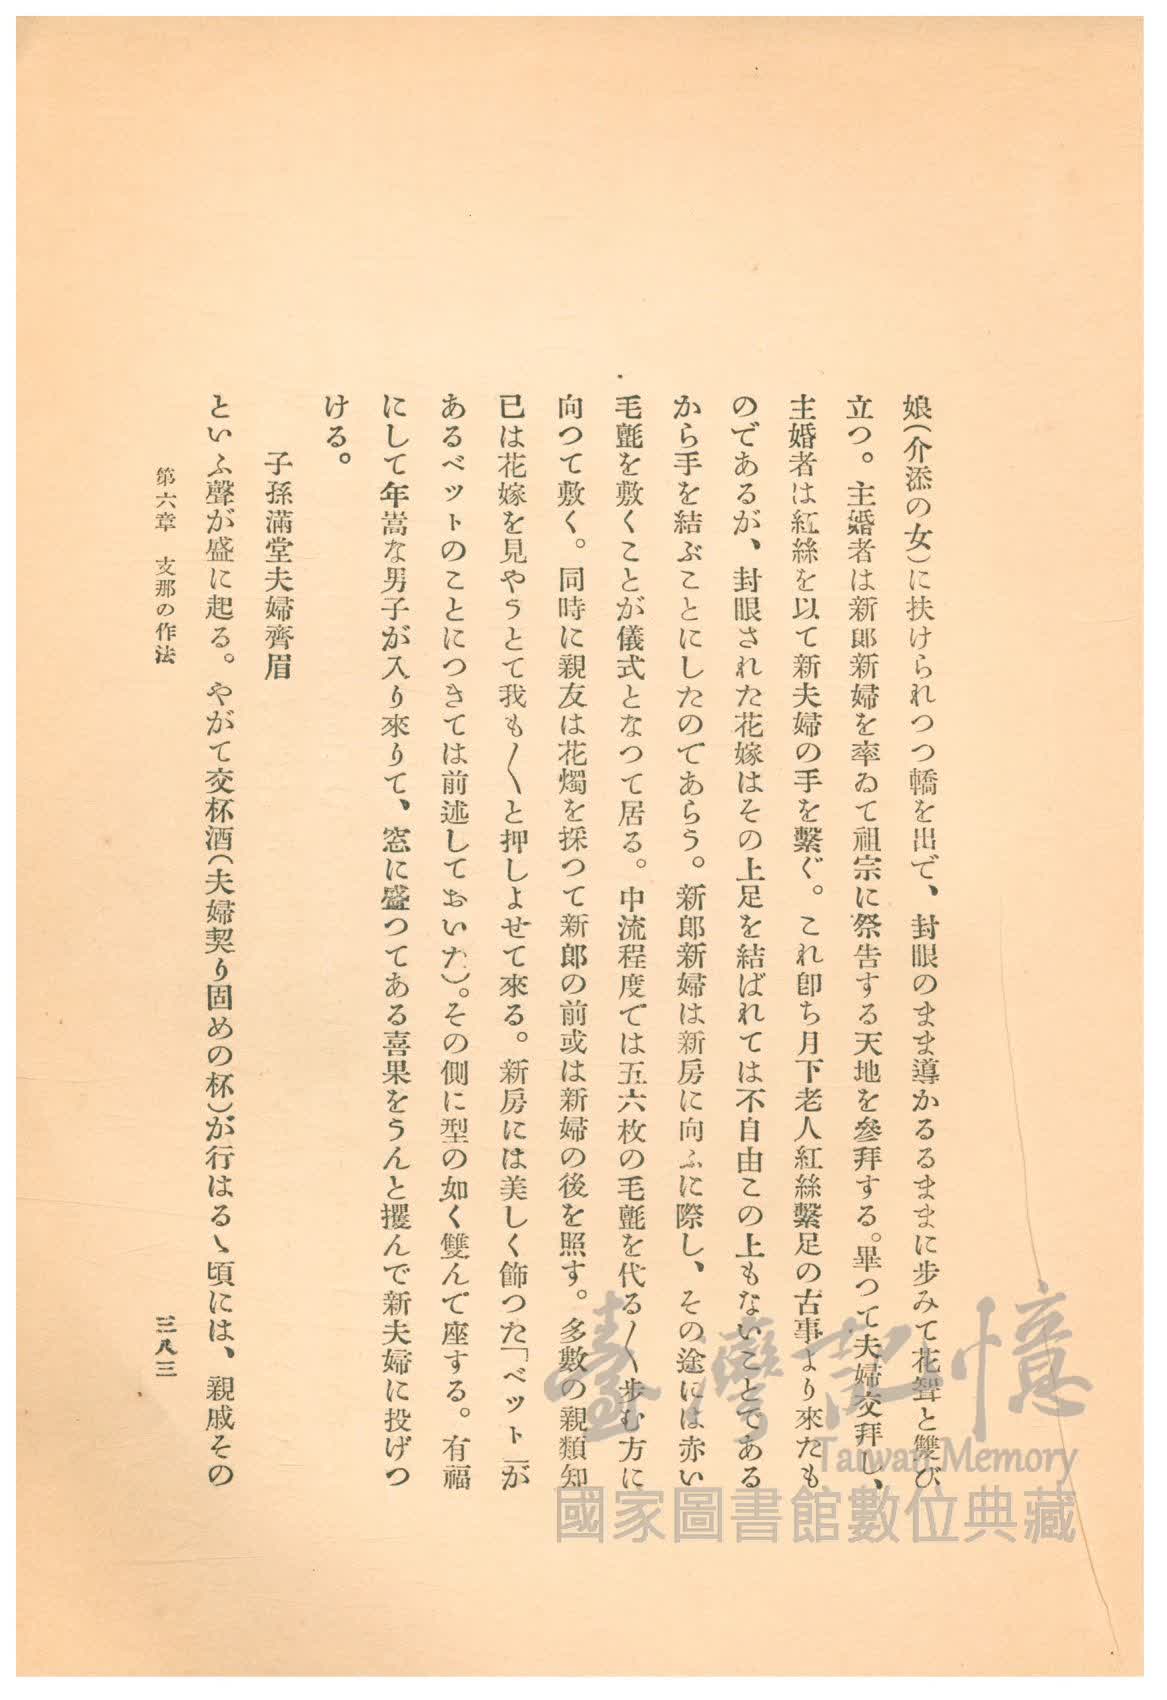 娘(介添の女)に扶けられつつ轎を出で、封眼のまま導かるるままに歩みて花聟と雙び
立つ。主婚者は新郞新婦を率ゐて祖宗に祭吿する天地を參拜する。畢つて夫婦交拜し、
主婚者は紅絲を以て新夫婦の手を繫ぐ。これ卽ち月下老人紅絲繫足の古事より來たも
のであるが、封眼された花嫁はその上足を結ばれては不自由この上もないことである
から手を結ぶことにしたのであらう。新郞新婦は新房に向ふに際し、その途には赤い
毛氈を敷くことが儀式となつて居る。中流程度では五六枚の毛氈を代る〱歩む方に
向つて敷く。同時に親友は花燭を採つて新郞の前或は新婦の後を照す。多數の親類知
已は花嫁を見やうとて我も〱と押しよせて來る。新房には美しく飾つた「ベット」が
あるベットのことにつきては前述しておいた)。その側に型の如く雙んで座する。有福
にして年嵩な男子が入り來りて、窓に盛つてある喜果をうんと攫んで新夫婦に投げつ
ける。
子孫滿堂夫婦齊眉
といふ聲が盛に起る。やがて交杯酒(夫婦契り固めの杯)が行はるゝ頃には、親戚その
第六章 支那の作法
三八三
臺灣記憶
Taiwan Memory
國家圖書館數位典藏